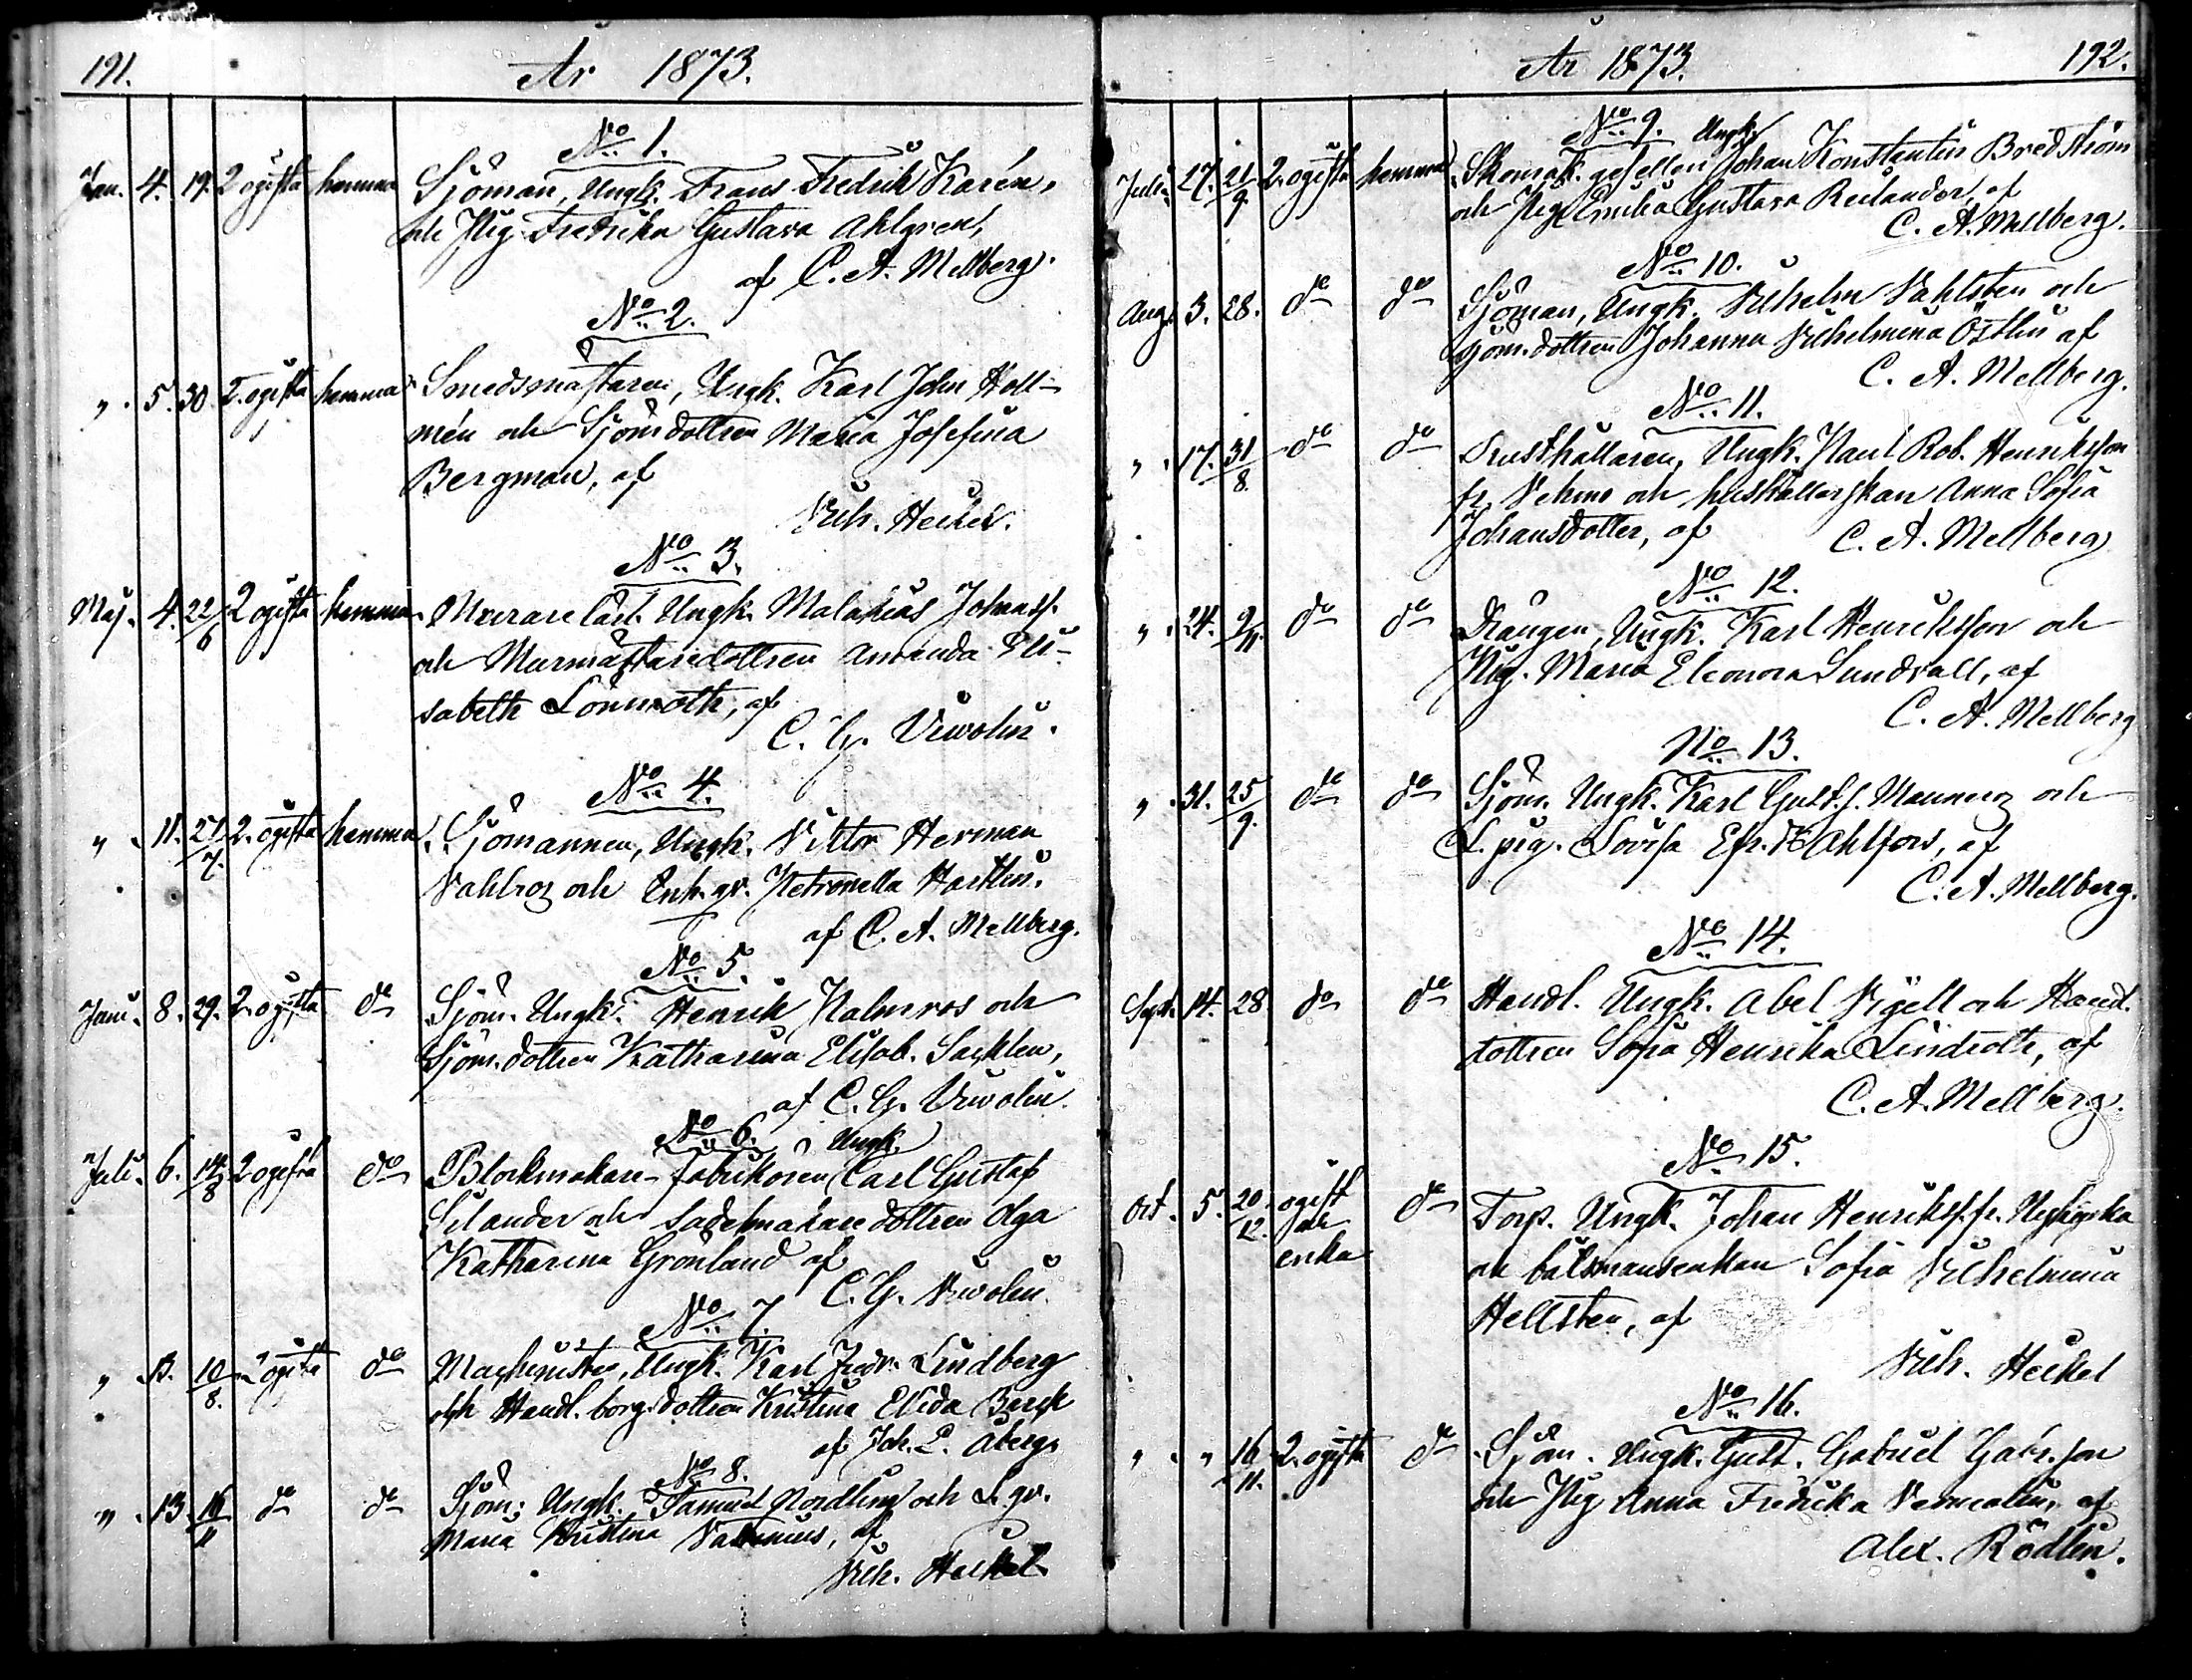 191.
År 1873.
No 1.
Jan. 4. 19. 2 ogifta hemma
Sjöman, Ungk. Frans Fredrik Karén,
och Pig. Fredrika Gustava Ahlgren,
af C. A. Mellberg.
No 2.
" 5. 30. 2. ogifta hemma
Smedsmästaren, Ungk. Karl John Holl-
mén och Sjömsdottren Maria Josefina
Bergman, af
Vilh. Heikel.
No 3.
Maj. 4. 22/6 2 ogifta hemma
Murarelärl. Ungk. Malakias Johanss.
och Murmästaredottren Amanda Eli-
sabeth Lönnroth, af
C. G. Viwolin.
No 4.
" 11. 27/7. 2. ogifta hemma
Sjömannen, Ungk. Viktor Herman
Vahlroz och Enk. gr. Petronella Harthin.
af C. A. Mellberg.
No 5.
Juni. 8. 29. 2. ogifta do
Sjöm. Ungk. Henrik Palmros och
Sjöm. dottren Katharina Elisab. Sacklen,
af C. G. Viwolin.
No 6.
Ungk.
Juli. 6. 14/8 2 ogifta do
Blockmakare-fabrikören Carl Gustaf
Silander och Sadelmakare dottren Olga
Katharina Grönlund af
C. G. Viwolin.
No 7.
" 13. 10/8. 2 ogifta do
Maschinisten, Ungk. Karl Fredr. Lindberg
och Handl. borg. dottren Kristina Elida Barck
af Joh. L. Åberg.
No 8.
" 13. 16/11 do do
Sjöm. Ungk. Samuel Nordling och L. gr.
Maria Kristina
Vilh. Heikel.
192.
År 1873.
No 9.
Ungk.
Juli. 27. 21/9. 2. ogifta hemma
Skomak. gesellen Johan Konstantin Bredström
och Pig. Emilia Gustava Reilander, af
C. A. Mellberg.
No 10.
Aug. 3. 28. do do
Sjöman, Ungk. Vilhelm Vahlsten och
Sjöm. dottren Johanna Vilhelmina Östlin af
C. A. Mellberg.
No 11.
" 17. 31/8. do do
Rusthållaren, Ungk. Paul Rob. Henriksson
fr. Vehmo och hushållerskan Anna Sofia
Johansdotter, af
C. A. Mellberg
No 12.
" 24. 9/11. do do
Drängen, Ungk. Karl Henriksson och
Pig. Maria Eleonora Sundvall, af
C. A. Mellberg
No 13.
" 31. 25/9. do do
Sjöm. Ungk. Karl Gust. f. Manneroz och
L. pig. Lovisa Efr. Ahlfors, af
C. A. Mellberg.
No 14.
Sept. 14. 28 do do
Handl. Ungk. Abel Vigell och Handl.
dottren Sofia Henrika Lindroth, af
C. A. Mellberg.
No 15.
Oct. 5. 20/12. ogift och enka do
Torp. Ungk. Johan Henrikss. fr. Nykyrka
och båtsmansenkan Sofia Vilhelmina
Hellsten, af
Vilh. Heikel
No 16.
" " 16/11. 2. ogifta do
Sjöm. Ungk. Gust. Gabriel Gabr. son
och Pig Anna Fredrika af
Alex. Rödlin.